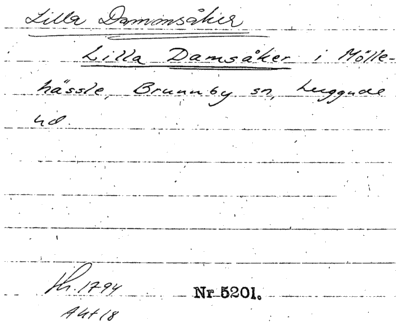 Lilla Dammsåker
Lilla Damsåker i Mölle-
hässle, Brunnby sn, Luggude
hd.
Hr. 1794
Nr 5201.
Akt 18